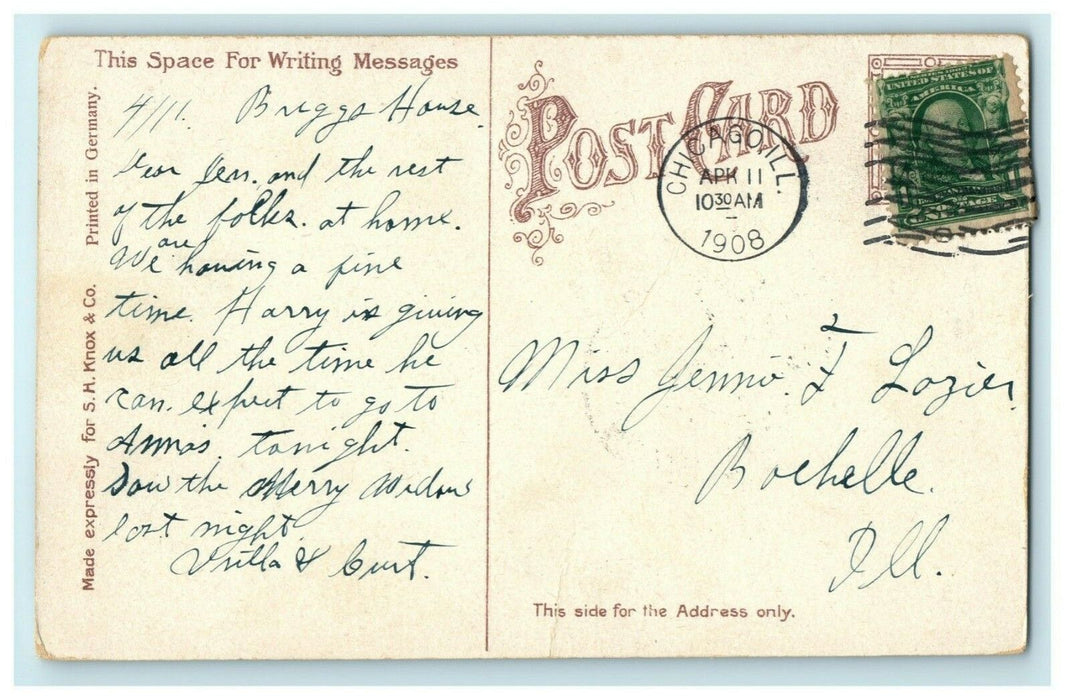 This Space For Writing Messages
Printed in Germany.
Made expressly for S. H. Knox & Co.
4/11. Briggs House.
Dear Jen. and the rest
of the folks. at home.
We are having a fine
time. Harry is giving
us all the time he
can. expect to go to
Annas. tonight.
Saw the Merry Widow
last night.
& Curt.
POST CARD
CHICAGO, ILL.
APR 11
10 30 AM
1908
UNITED STATES OF
AMERICA
Miss Jennie F Lazier
Rochelle.
Ill.
This side for the Address only.